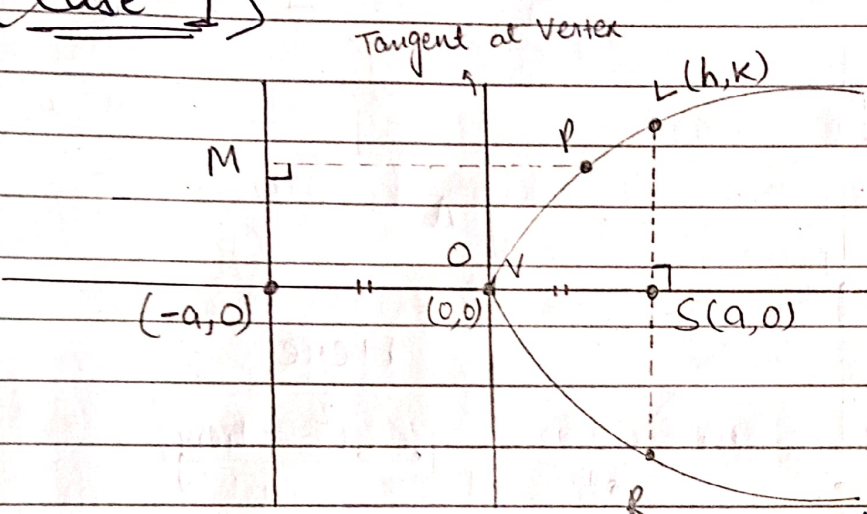 Case I)
Tangent at Vertex
L (h,k)
P
M
O
V
(-a,0)
(0,0)
S(a,0)
R